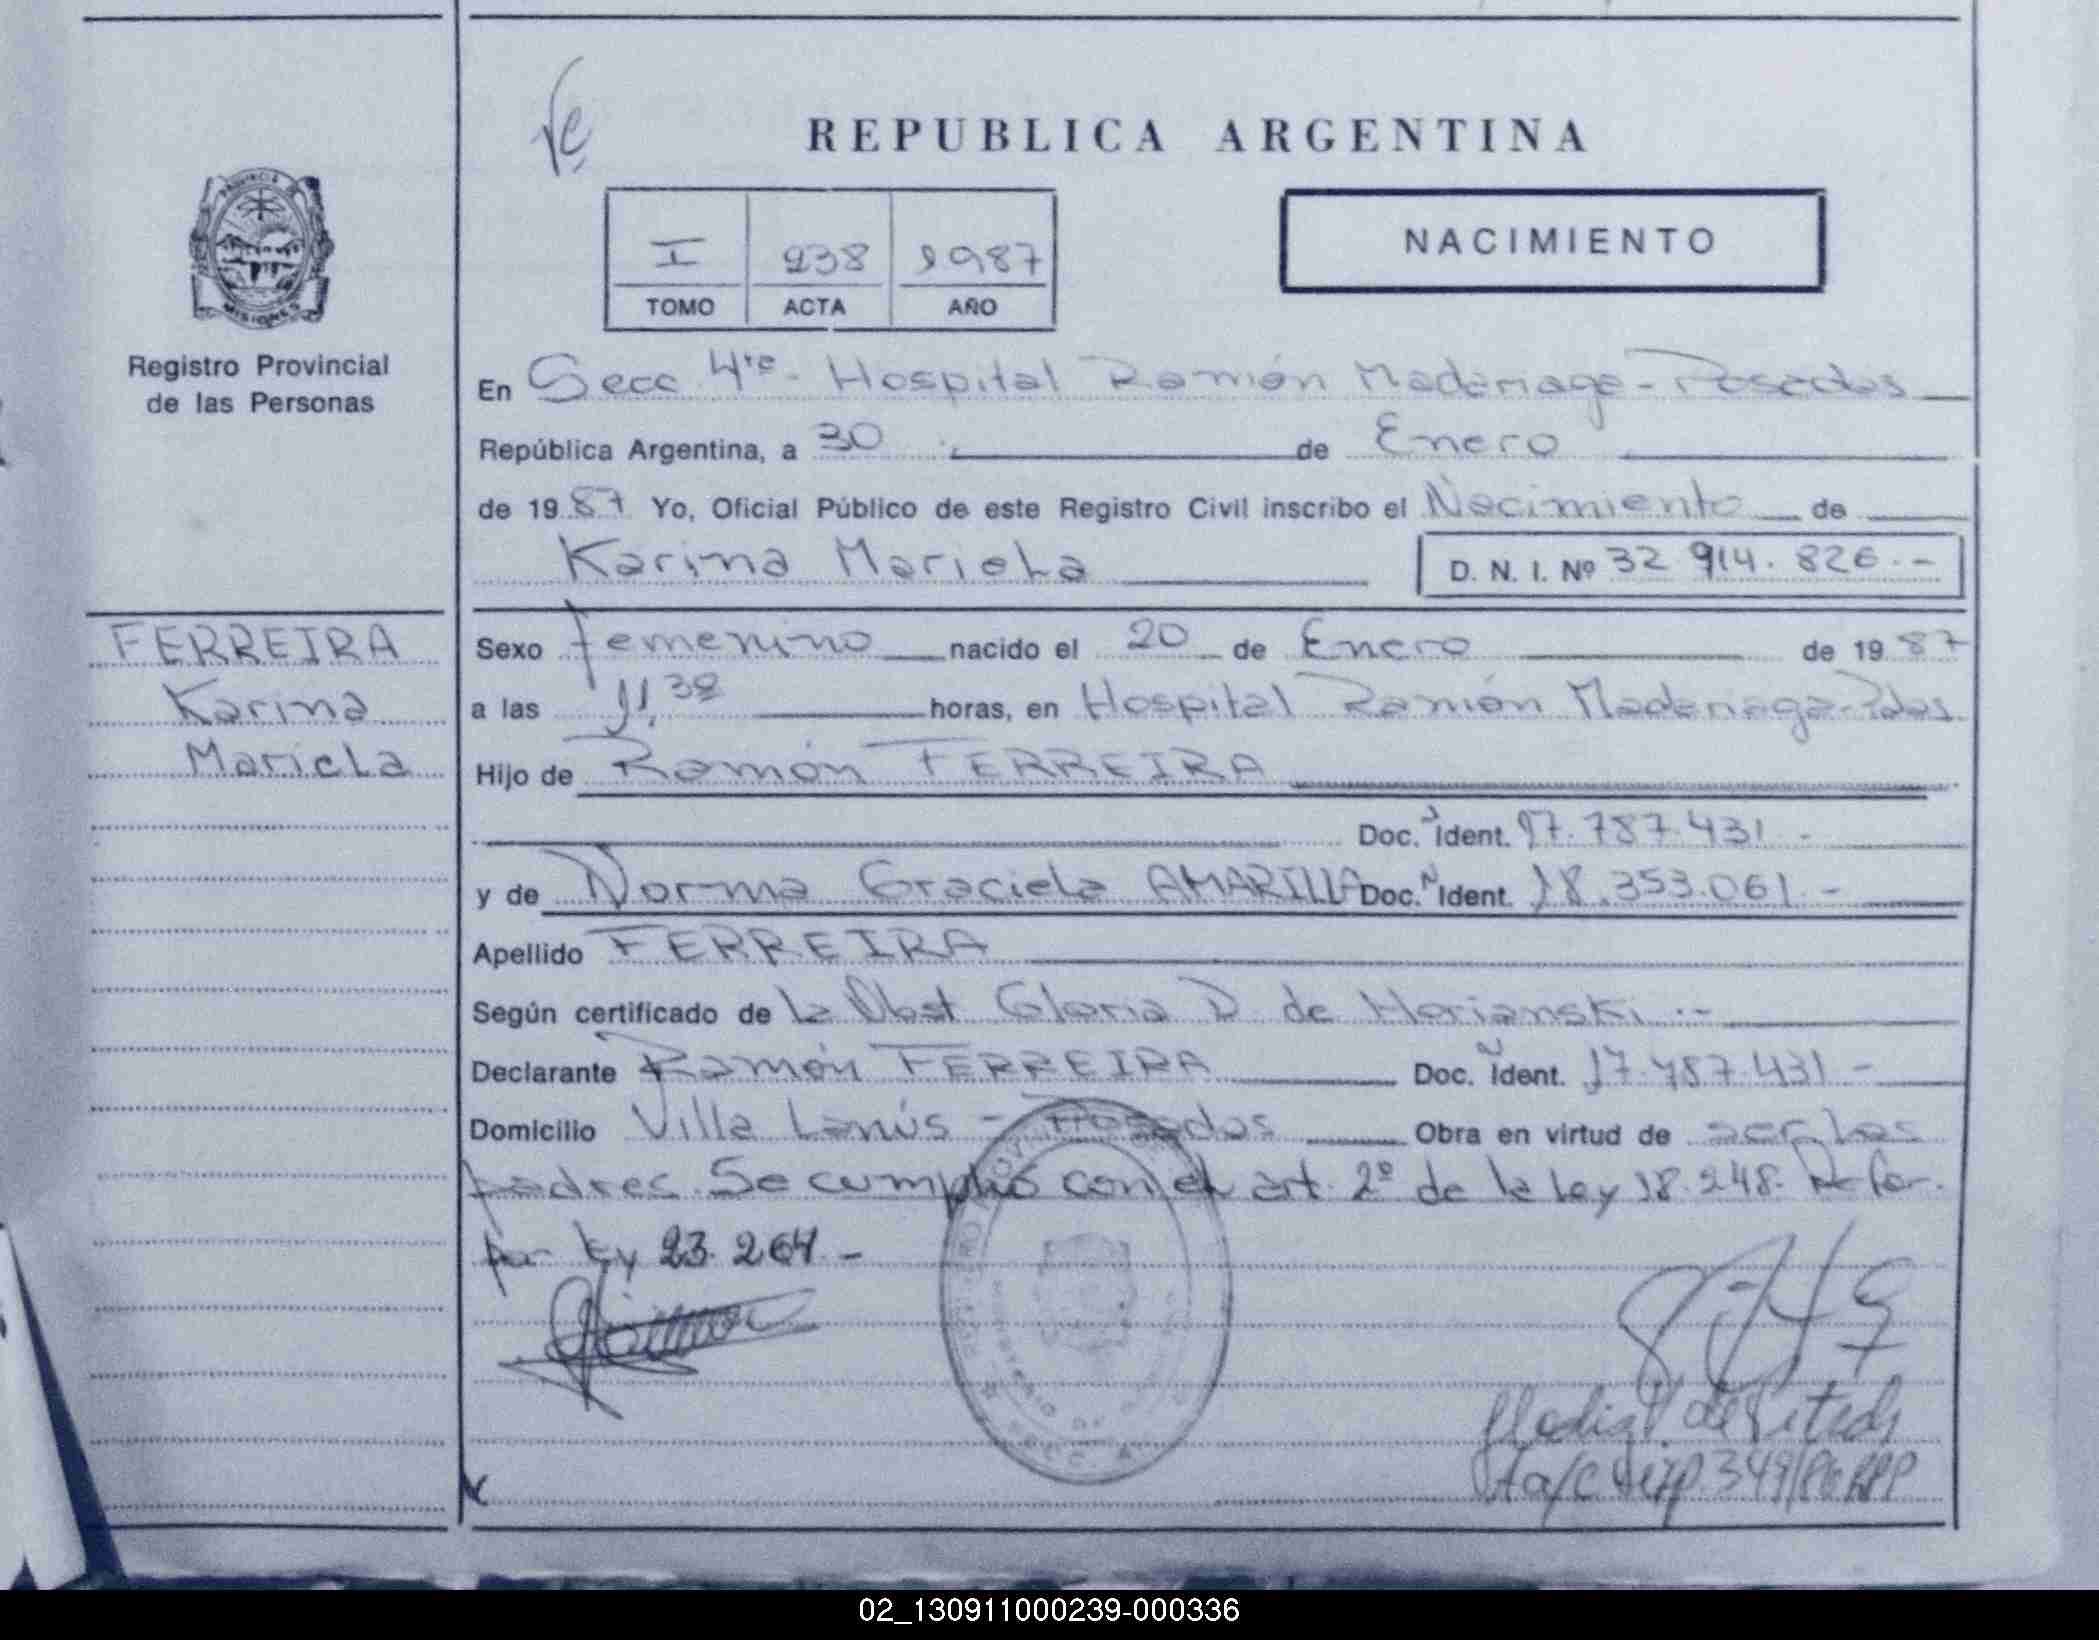 REPUBLICA ARGENTINA
PROVINCIA DE
MISIONES
Registro Provincial
de las Personas
I 238 1987
TOMO ACTA AÑO
NACIMIENTO
En Secc 4ta - Hospital Ramón Madariaga - Posadas
República Argentina, a 30 de Enero
de 1987 Yo, Oficial Público de este Registro Civil inscribo el Nacimiento de
Karina Mariela D. N. I. Nº 32 914. 826.-
FERREIRA
Karina
Mariela
Sexo femenino nacido el 20 de Enero de 1987
a las horas, en Hospital Ramón Madariaga-Pdas.
Hijo de Ramón FERREIRA
Doc. Ident. 17.787.431.-
y de Norma Graciela AMARILLA Doc. Ident. 18.353.061.-
Apellido FERREIRA
Según certificado de la Obst Gloria D. de
Declarante Ramón FERREIRA Doc. Ident. 17.787.431-
Domicilio Villa Lanús - Posadas Obra en virtud de ser los
padres. Se cumplió con el art. 2º de la ley 18.248. Refor.
por ley 23.264.-
02_130911000239-000336